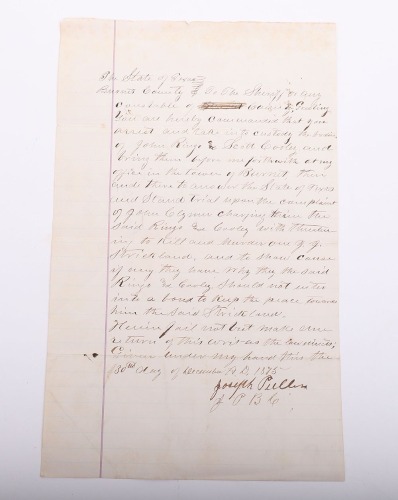 The State of Texas
Burnet County } To the Sheriff or any
constable of said County Greeting
You are hereby commanded that you
arrest and take into custody the bodies
of John Ringo & Scott Cooley and
bring them before me forthwith at my
office in the town of Burnet then
and there to answer the State of Texas
and Stand trial upon the complaint
of John Clymer charging them the
said Ringo & Cooley with threaten
ing to Kill and murder one J. J.
Strickland, and to show cause
if any they have why they the said
Ringo & Cooley should not enter
into a bond to keep the peace towards
him the said Strickland.
Herein fail not but make due
return of this writ as the law directs
Given under my hand this the
30th day of December A.D. 1875
Joseph
J P B C